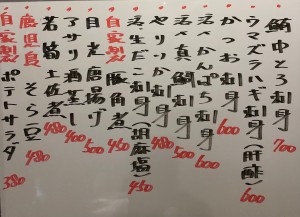 鮪中とろ刺身 700
ウマズラハギ刺身(肝酢) 600
かつお刺身 600
活〆かんぱち刺身 600
活〆真鯛刺身 500
やりいか刺身 480
活〆生だこ刺身(胡麻塩) 450
自家製豚角煮 450
目光唐揚げ 500
アサリ酒蒸し 400
若筍土佐煮 480
鹿児島そら豆 480
自家製ポテトサラダ 380